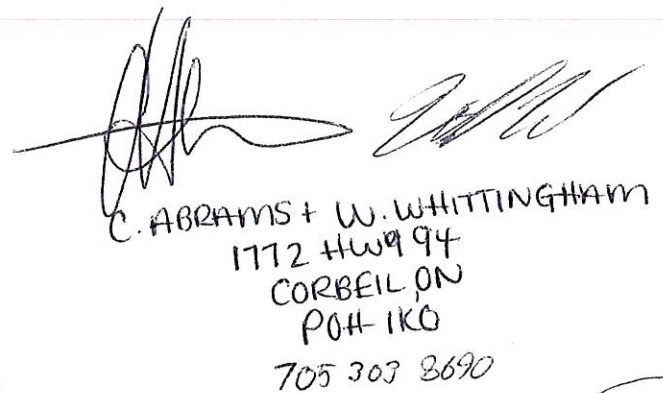 C. ABRAMS + W. WHITTINGHAM
1772 HWY 94
CORBEIL, ON
P0H-1K0
705 303 8690